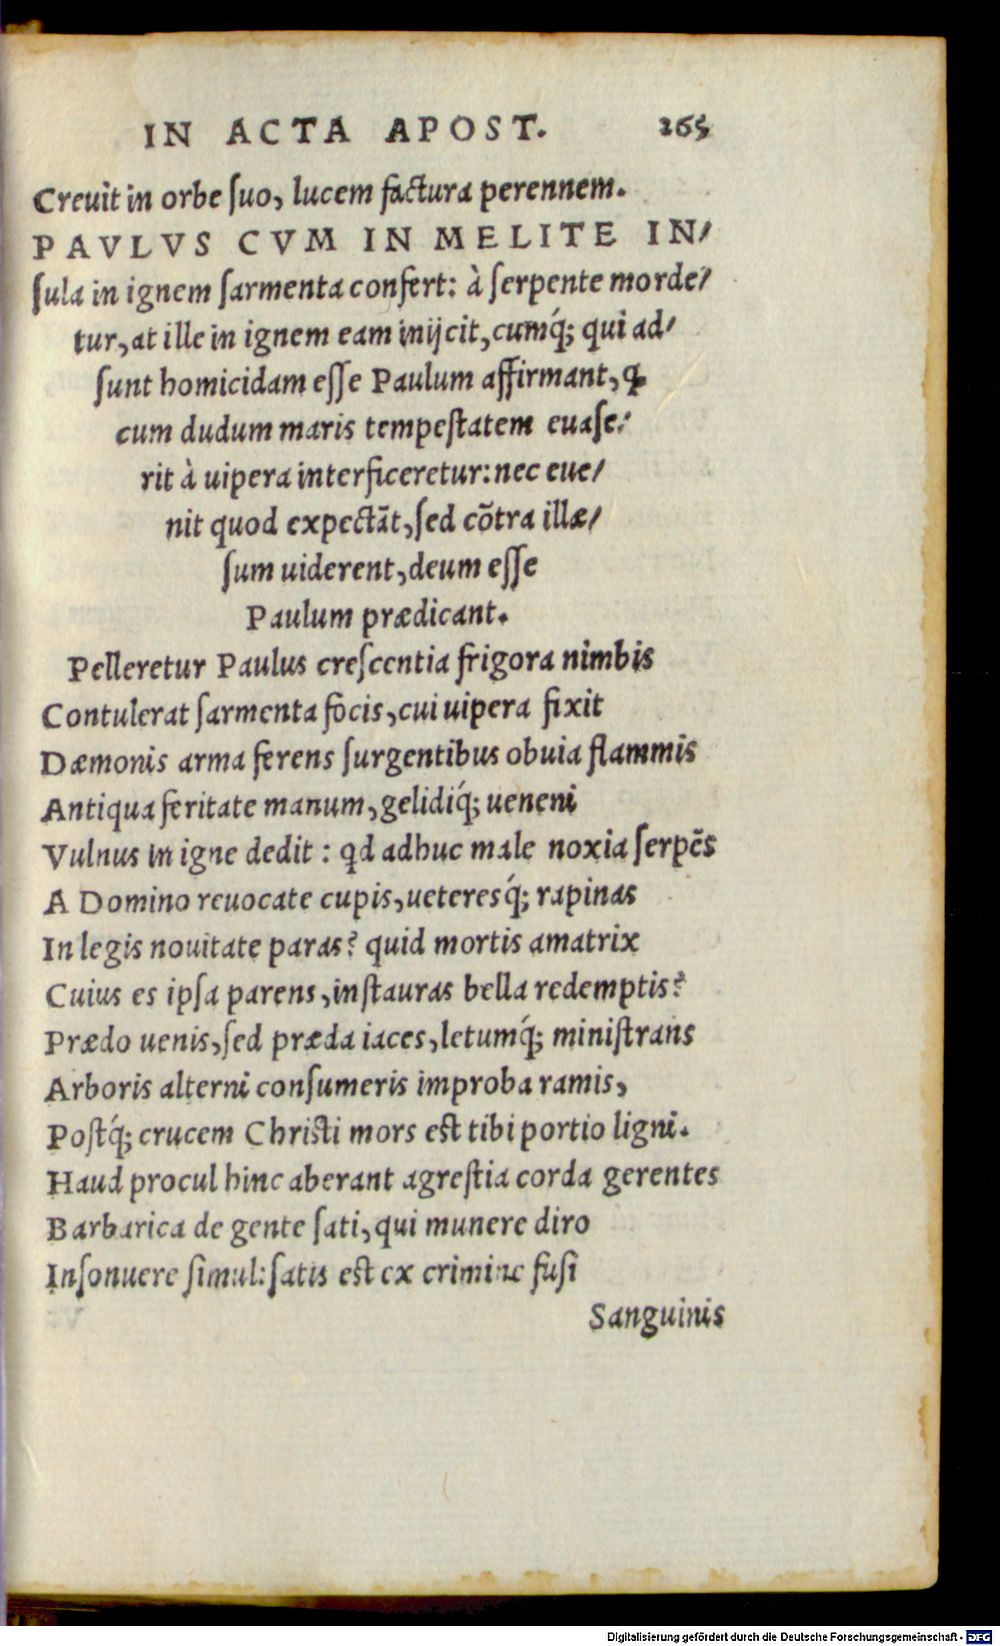 IN ACTA APOST. 265
Creuit in orbe ſuo, lucem factura perennem.
PAVLVS CVM IN MELITE IN/
ſula in ignem ſarmenta confert: à ſerpente morde/
tur, at ille in ignem eam inijcit, cumq́; qui ad/
ſunt homicidam eſſe Paulum affirmant, ꝙ
cum dudum maris tempeſtatem euaſe/
rit à uipera interficeretur: nec eue/
nit quod expectãt, ſed cõtra illæ/
ſum uiderent, deum eſſe
Paulum prædicant.
Pelleretur Paulus creſcentia frigora nimbis
Contulerat ſarmenta focis, cui uipera fixit
Dæmonis arma ferens ſurgentibus obuia flammis
Antiqua feritate manum, gelidiq́; ueneni
Vulnus in igne dedit: qd adhuc male noxia ſerpẽs
A Domino reuocate cupis, ueteresq́; rapinas
In legis nouitate paras? quid mortis amatrix
Cuius es ipſa parens, inſtauras bella redemptis?
Prædo uenis, ſed præda iaces, letumq́; miniſtrans
Arboris alterni conſumeris improba ramis,
Poſtq́; crucem Chriſti mors est tibi portio ligni.
Haud procul hinc aberant agreſtia corda gerentes
Barbarica de gente ſati, qui munere diro
Inſonuere ſimul: ſatis est ex crimine fuſi
Sanguinis
Digitalisierung gefördert durch die Deutsche Forschungsgemeinschaft - DFG